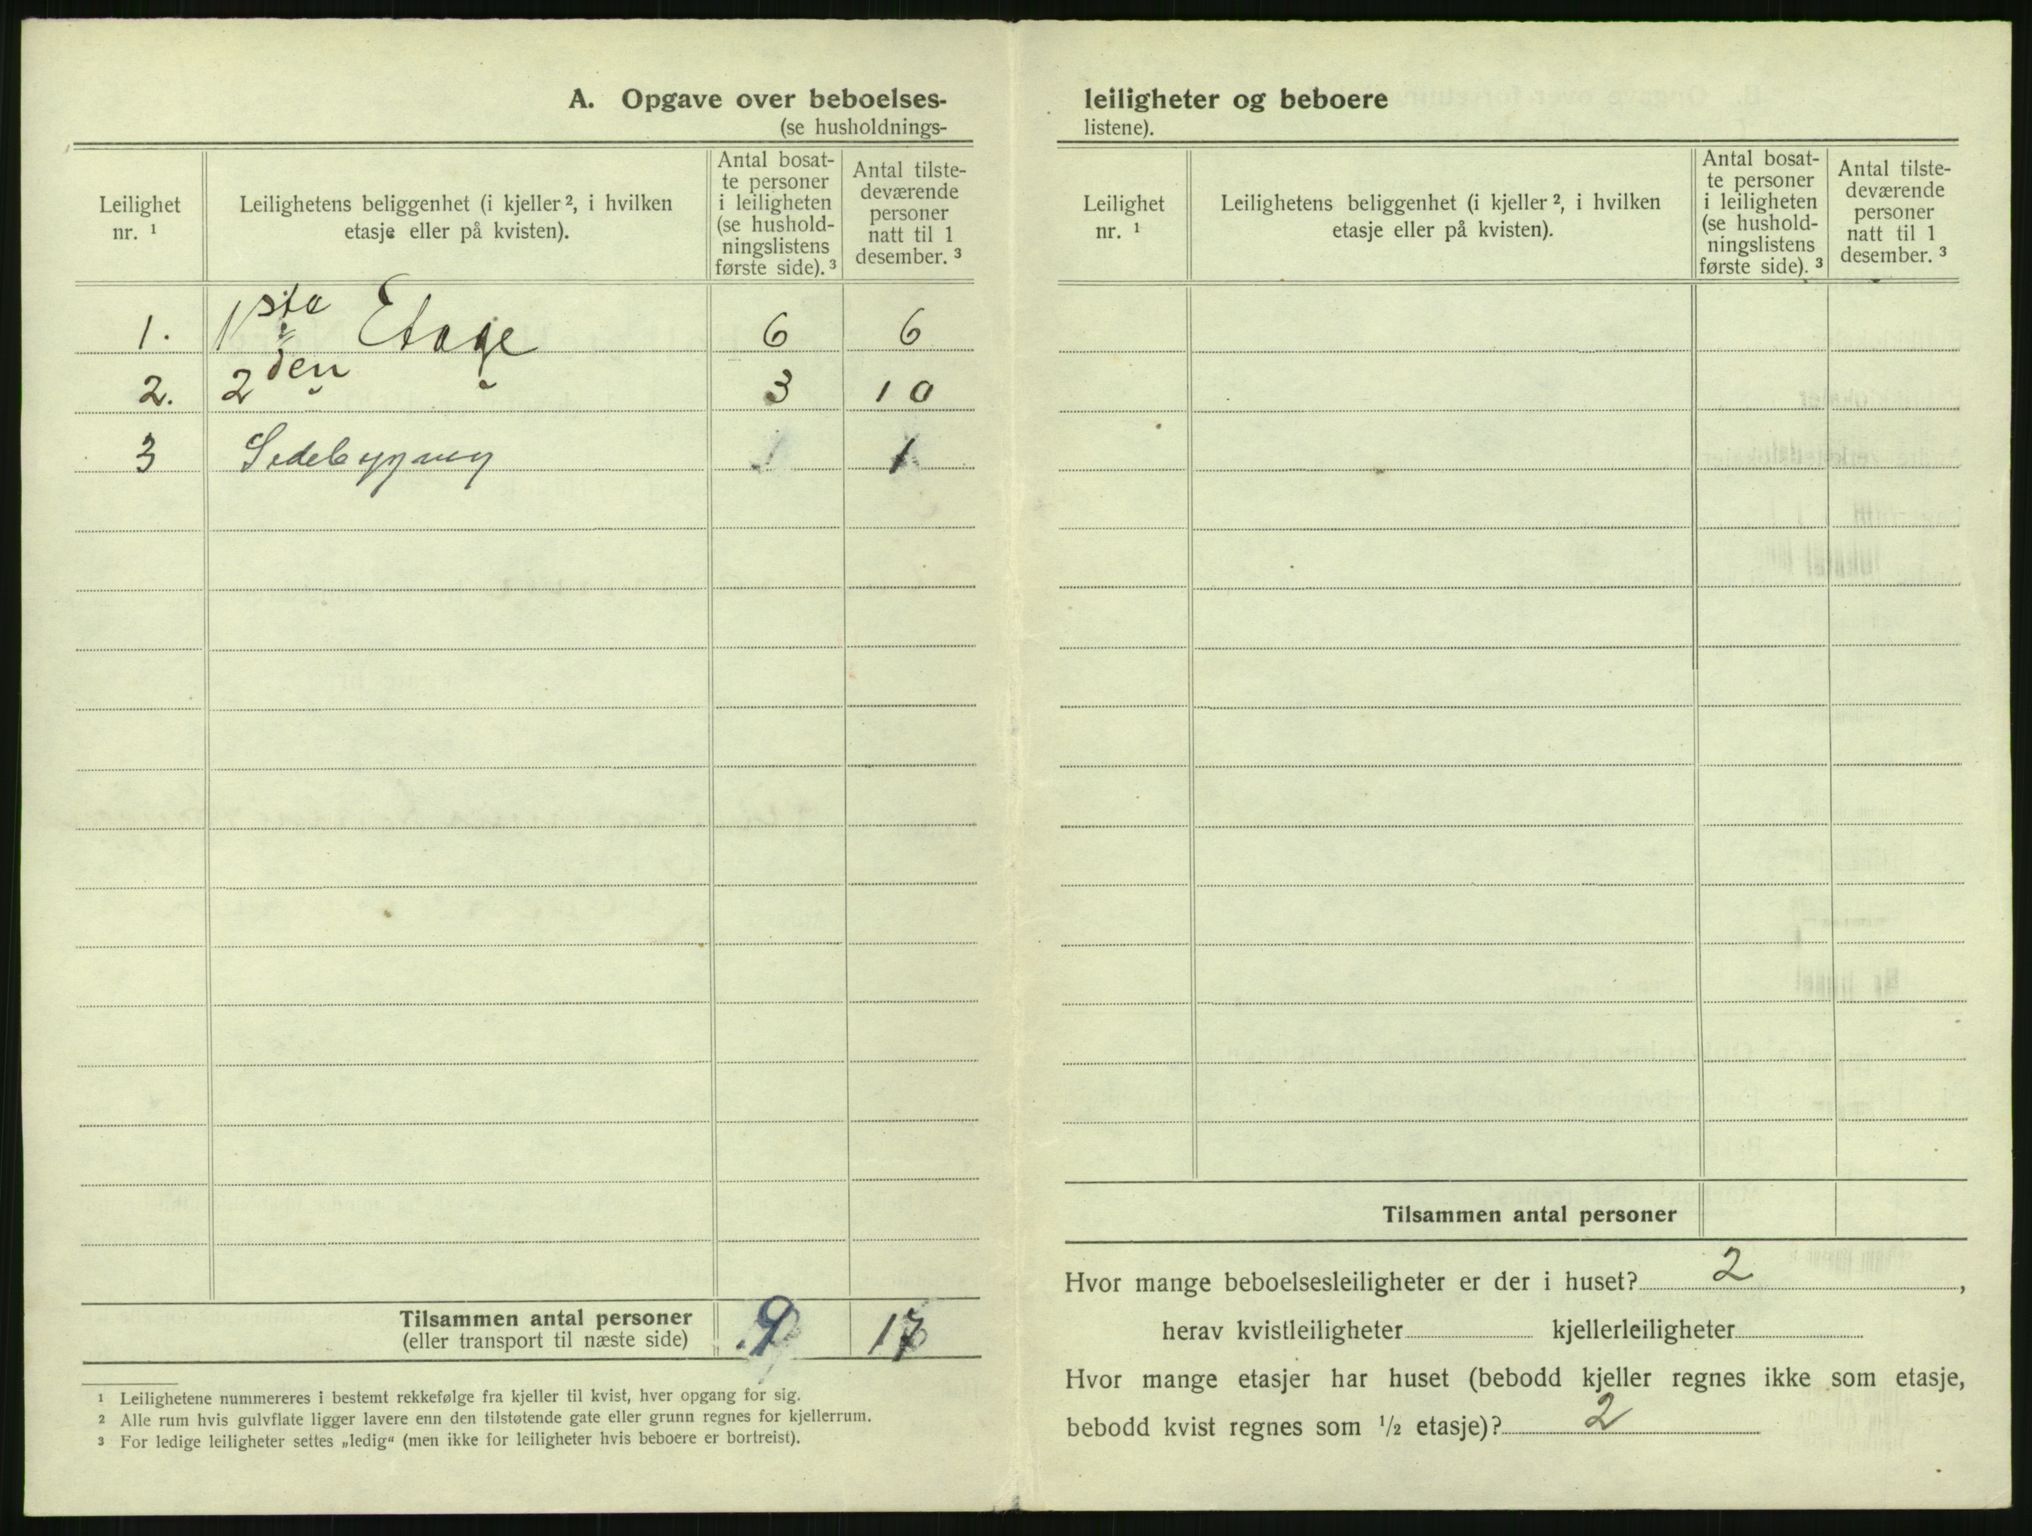 A. Opgave over beboelses-
(se husholdnings-
Leilighet nr. ¹
Leilighetens beliggenhet (i kjeller ², i hvilken etasje eller på kvisten).
Antal bosat-
te personer
i leiligheten
(se hushold-
ningslistens
første side). ³
Antal tilste-
deværende
personer
natt til 1
desember. ³
1. 1ste Etage 6 6
2. 2den " " 3 10
3 Sidebygning 1 1
Tilsammen antal personer 9 17
(eller transport til næste side)
¹ Leilighetene nummereres i bestemt rekkefølge fra kjeller til kvist, hver opgang for sig.
² Alle rum hvis gulvflate ligger lavere enn den tilstøtende gate eller grunn regnes for kjellerrum.
³ For ledige leiligheter settes „ledig“ (men ikke for leiligheter hvis beboere er bortreist).
leiligheter og beboere
listene).
Leilighet nr. ¹
Leilighetens beliggenhet (i kjeller ², i hvilken etasje eller på kvisten).
Antal bosat-
te personer
i leiligheten
(se hushold-
ningslistens
første side). ³
Antal tilste-
deværende
personer
natt til 1
desember. ³
Tilsammen antal personer
Hvor mange beboelsesleiligheter er der i huset? 2 ,
herav kvistleiligheter kjellerleiligheter
Hvor mange etasjer har huset (bebodd kjeller regnes ikke som etasje,
bebodd kvist regnes som ½ etasje)? 2